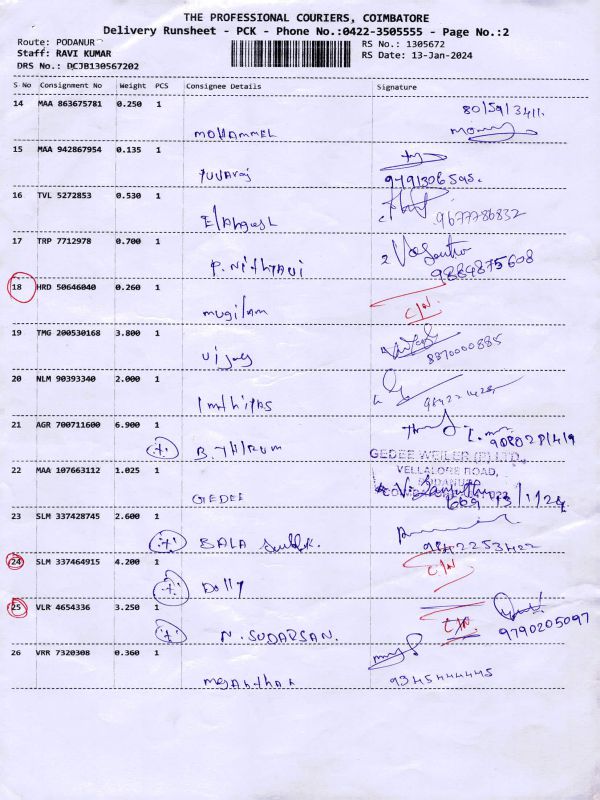 THE PROFESSIONAL COURIERS, COIMBATORE
Delivery Runsheet - PCK - Phone No.:0422-3505555 - Page No.:2
Route: PODANUR
Staff: RAVI KUMAR
DRS No.: DCJB130567202
RS No.: 1305672
RS Date: 13-Jan-2024
S No Consignment No Weight PCS Consignee Details Signature
14 MAA 863675781 0.250 1
MOHAMMEL
15 MAA 942867954 0.135 1
YUVAraj
9791306595.
16 TVL 5272853 0.530 1
9677786832
17 TRP 7712978 0.700 1
P. NITHYAVI
9884875608
18 HRD 50646040 0.260 1
mugilam
C/N
19 TMG 200530168 3.800 1
Vijay
8870000885
20 NLM 90393340 2.000 1
21 AGR 700711600 6.900 1
B. THIRUM
GEDEE WEILER (P) LTD.,
VELLALORE ROAD,
22 MAA 107663112 1.025 1
GEDEE
23 SLM 337428745 2.600 1
BALA
9842253422
24 SLM 337464915 4.200 1
Dolly
C/N
25 VLR 4654336 3.250 1
N. SUDARSAN.
C/N
9790205097
26 VRR 7320308 0.360 1
9345444445